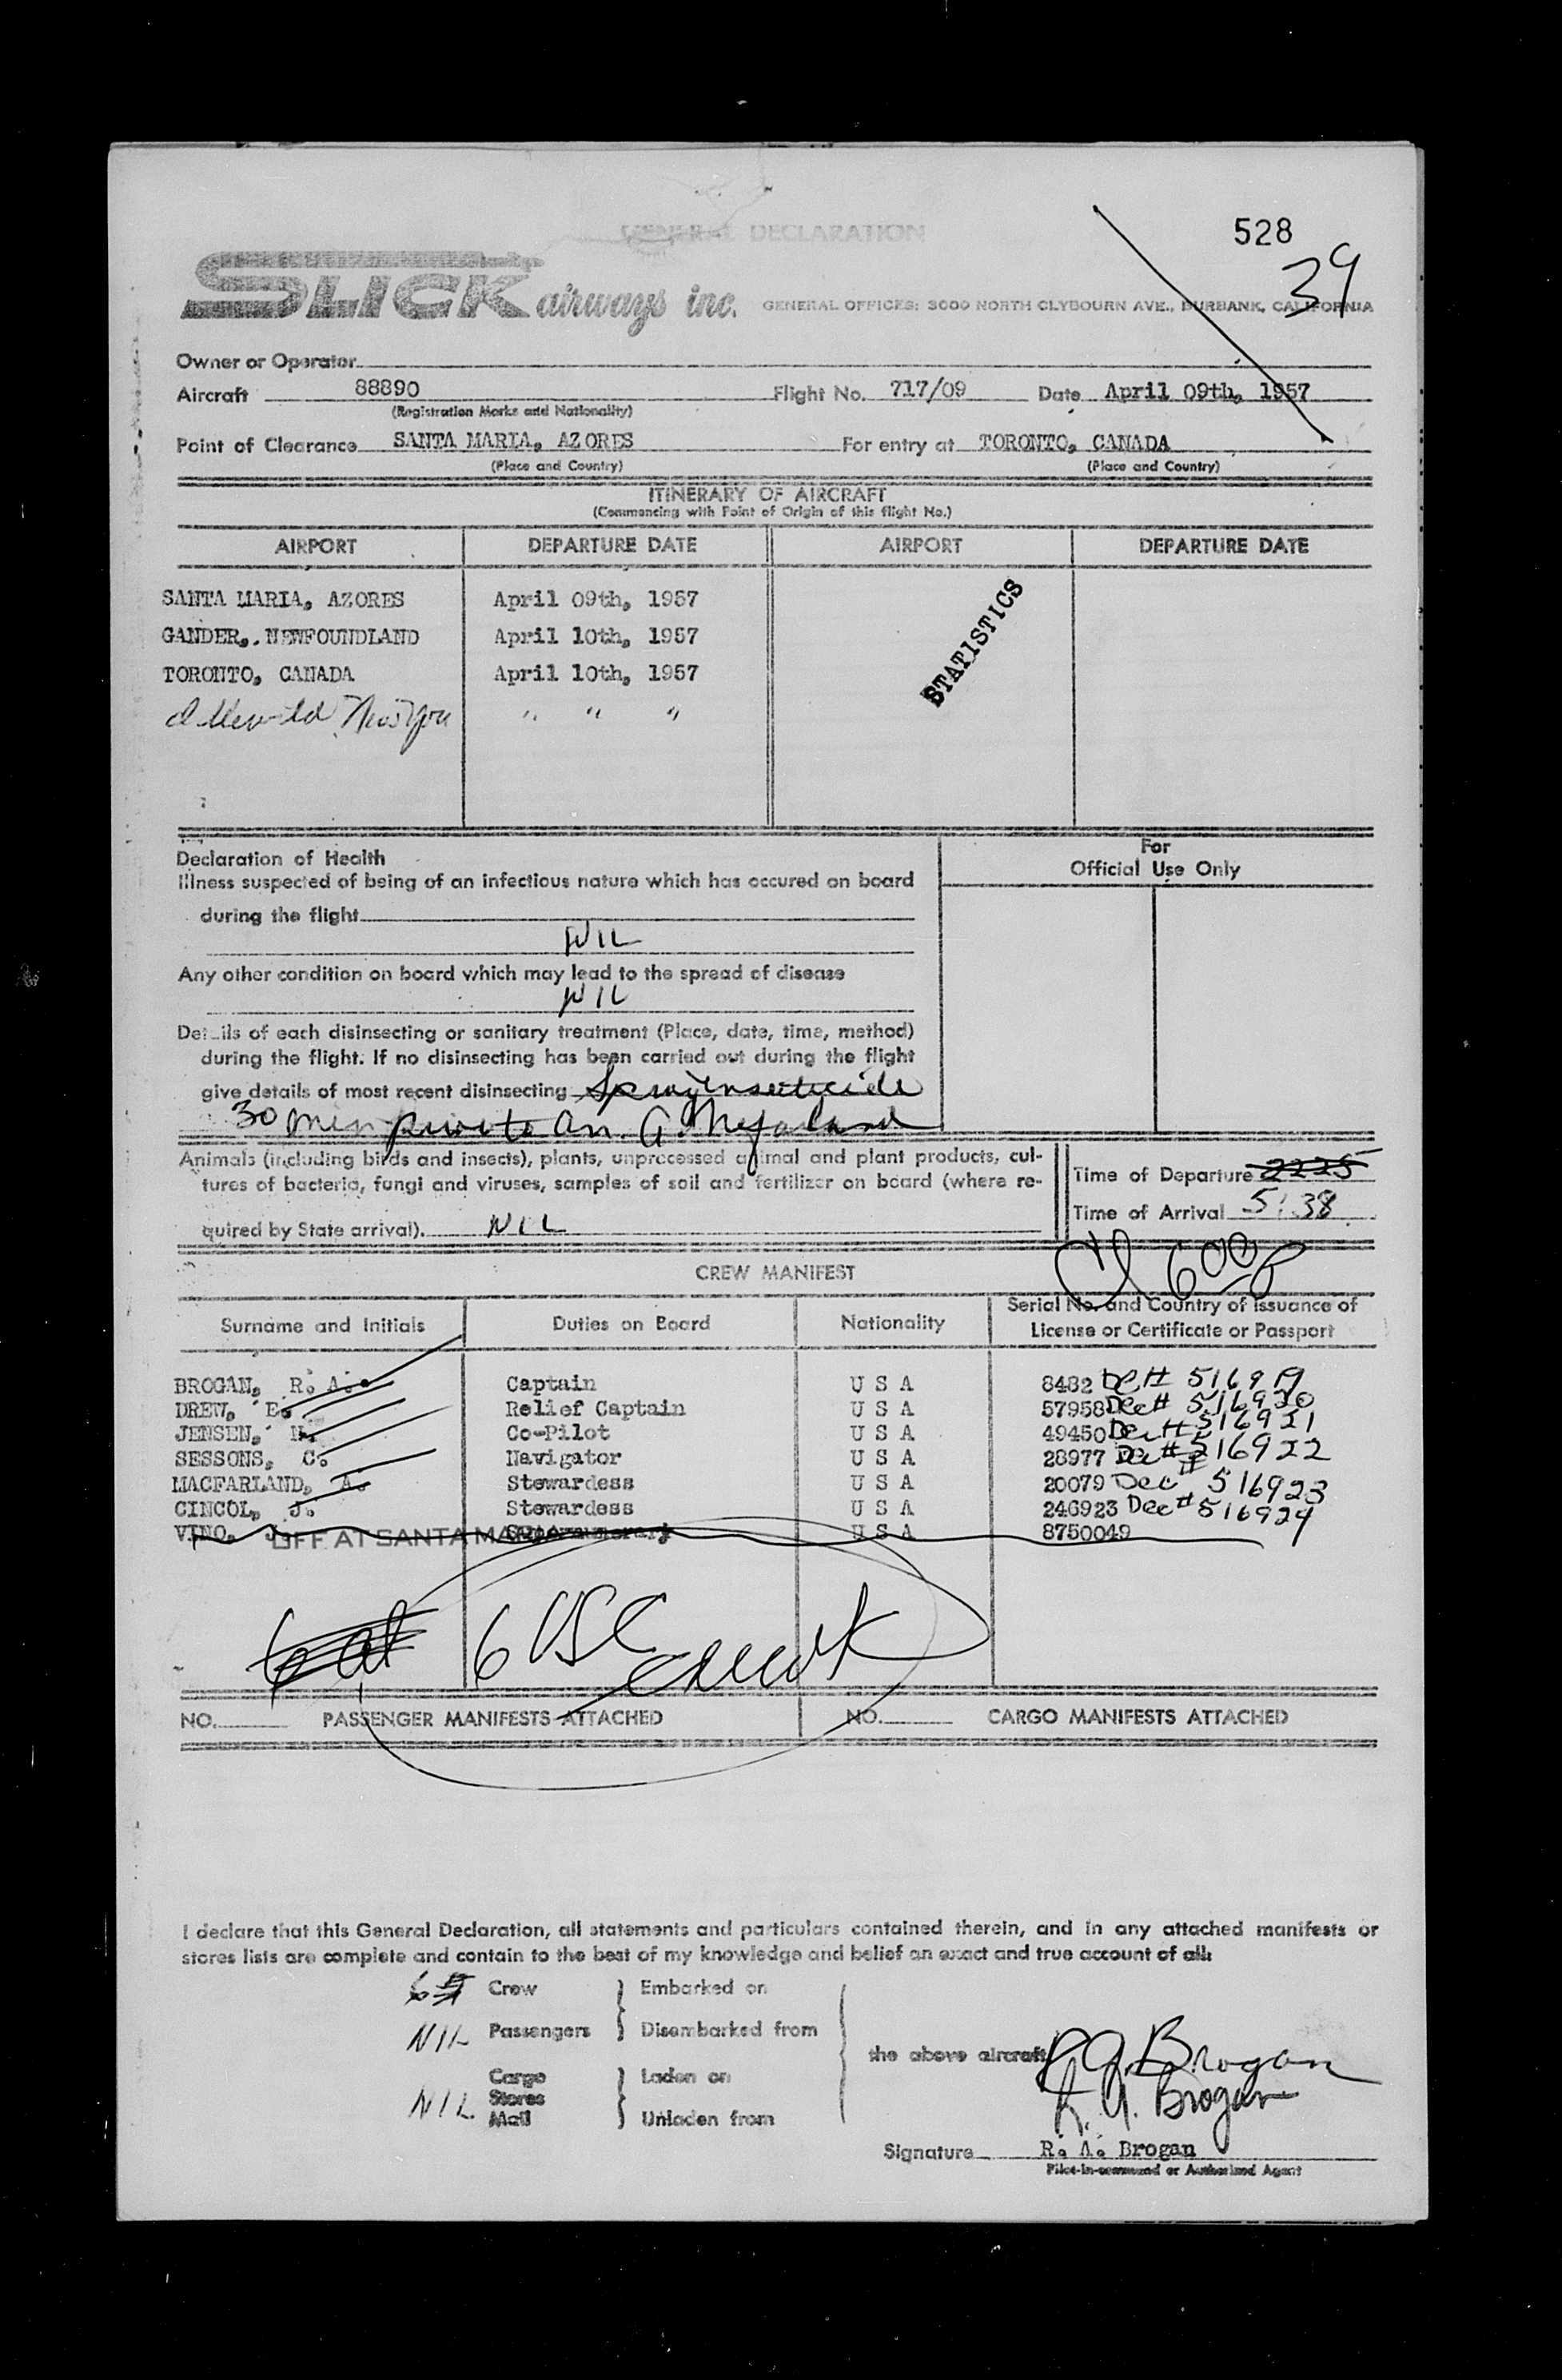 528
39
GENERAL DECLARATION
SLICK airways inc. GENERAL OFFICES: 3000 NORTH CLYBOURN AVE., BURBANK, CALIFORNIA
Owner or Operator
Aircraft 88890 Flight No. 717/09 Date April 09th, 1957
(Registration Marks and Nationality)
Point of Clearance SANTA MARIA, AZORES For entry at TORONTO, CANADA
(Place and Country) (Place and Country)
ITINERARY OF AIRCRAFT
(Commencing with Point of Origin of this flight No.)
AIRPORT DEPARTURE DATE AIRPORT DEPARTURE DATE
SANTA MARIA, AZORES April 09th, 1957
GANDER, NEWFOUNDLAND April 10th, 1957
TORONTO, CANADA April 10th, 1957
" " "
STATISTICS
Declaration of Health
Illness suspected of being of an infectious nature which has occured on board
during the flight
NIL
Any other condition on board which may lead to the spread of disease
NIL
Details of each disinsecting or sanitary treatment (Place, date, time, method)
during the flight. If no disinsecting has been carried out during the flight
give details of most recent disinsecting Spray insecticide
30 min prior to arr. A. McFarland
For
Official Use Only
Animals (including birds and insects), plants, unprocessed animal and plant products, cul-
tures of bacteria, fungi and viruses, samples of soil and fertilizer on board (where re-
quired by State arrival). NIL
Time of Departure 2225
Time of Arrival 5:38
600P
CREW MANIFEST
Surname and Initials Duties on Board Nationality Serial No. and Country of Issuance of
License or Certificate or Passport
BROGAN, R. A. Captain U S A 8482 Dec# 516919
DREW, E. Relief Captain U S A 57958 Dec# 516920
JENSEN, N. Co-Pilot U S A 49450 Dec# 516921
SESSONS, C. Navigator U S A 28977 Dec# 516922
MACFARLAND, A. Stewardess U S A 20079 Dec# 516923
CINCOL, J. Stewardess U S A 246923 Dec# 516924
VINO, J. OFF AT SANTA MARIA Supernumerary U S A 8750049
6 USC
NO. PASSENGER MANIFESTS ATTACHED NO. CARGO MANIFESTS ATTACHED
I declare that this General Declaration, all statements and particulars contained therein, and in any attached manifests or
stores lists are complete and contain to the best of my knowledge and belief an exact and true account of all:
6 Crew Embarked on
NIL Passengers Disembarked from
the above aircraft R A Brogan
Cargo Laden on
NIL Stores
Mail Unladen from
R. A. Brogan
Signature R. A. Brogan
Pilot-in-command or Authorized Agent